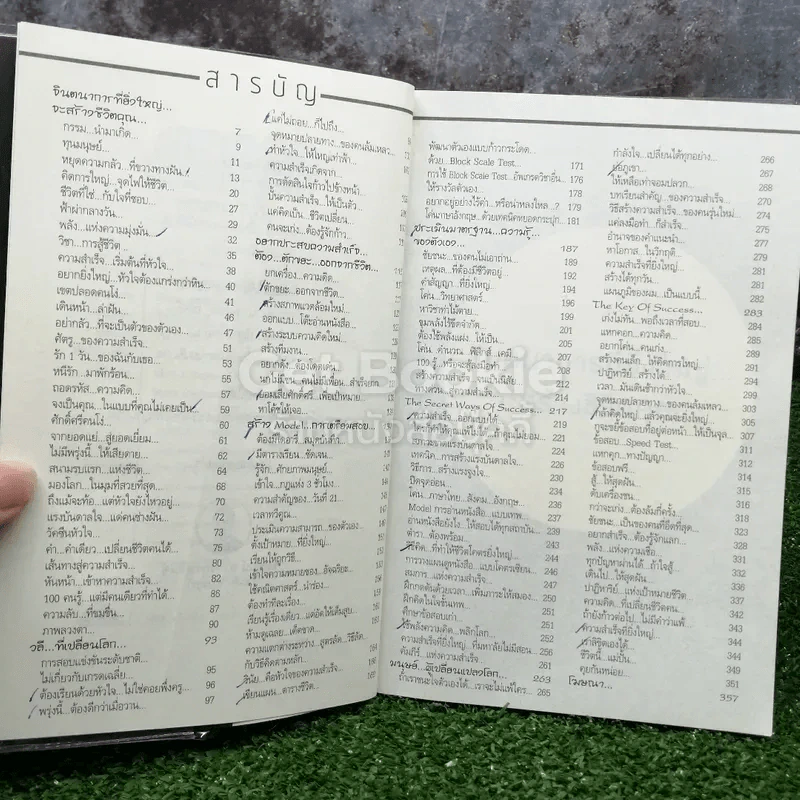 สารบัญ
จินตนาการที่ยิ่งใหญ่...
จะสร้างชีวิตคุณ...
กรรม...นำมาเกิด... 7
ทุนมนุษย์... 9
หยุดความกลัว...ที่ขวางทางฝัน 11
คิดการใหญ่...จุดไฟให้ชีวิต... 13
ชีวิตที่ใช่...กับใจที่ชอบ... 20
ฟ้าผ่ากลางวัน... 27
พลัง...แห่งความมุ่งมั่น 29
วิชา...การสู้ชีวิต... 32
ความสำเร็จ...เริ่มต้นที่หัวใจ... 35
อยากยิ่งใหญ่...หัวใจต้องแกร่งกว่าหิน... 40
เขตปลอดคนโง่... 41
เดินหน้า...ล่าฝัน 46
อย่ากลัว...ที่จะเป็นตัวของตัวเอง... 47
ศัตรู...ของความสำเร็จ... 51
รัก 1 วัน...ของฉันกับเธอ... 53
หนีรัก...มาพักร้อน... 55
ถอดรหัส...ความคิด... 57
จงเป็นคุณ...ในแบบที่คุณไม่เคยเป็น 59
ศักดิ์ศรีคนโง่... 60
จากยอดแย่...สู่ยอดเยี่ยม... 61
ไม่มีพรุ่งนี้...ให้เสียดาย... 62
สนามรบแรก...แห่งชีวิต... 64
มองโลก...ในมุมที่สวยที่สุด... 68
ถึงแม้จะท้อ...แต่หัวใจยังไหวอยู่... 70
แรงบันดาลใจ...แด่คนช่างฝัน... 72
วัคซีนหัวใจ... 73
คำ...คำเดียว...เปลี่ยนชีวิตคนได้... 75
เส้นทางสู่ความสำเร็จ... 80
หันหน้า...เข้าหาความสำเร็จ... 82
100 คนรู้...แต่มีคนเดียวที่ทำได้... 86
ความลับ...ที่ขมขื่น... 87
ภาพลวงตา... 90
วลี...ที่เปลี่ยนโลก... 93
การสอบแข่งขันระดับชาติ...
ไม่เกี่ยวกับเกรดเฉลี่ย... 95
ต้องเรียนด้วยหัวใจ...ไม่ใช่คอยพึ่งครู... 96
พรุ่งนี้...ต้องดีกว่าเมื่อวาน... 97
แค่ไม่ถอย...ก็ไปถึง...
จุดหมายปลายทาง...ของคนล้มเหลว...
ทำหัวใจ...ให้ใหญ่เท่าฟ้า...
ความสำเร็จเกิดจาก
การตัดสินใจก้าวไปข้างหน้า...
ปั้นความสำเร็จ...ให้เป็นตัว...
แค่คิดเป็น...ชีวิตเปลี่ยน...
คนจะเก่ง...ต้องรู้จักก้าว...
อยากประสบความสำเร็จ...
ต้อง...ตักขยะ...ออกจากชีวิต...
ยกเครื่อง...ความคิด...
ตักขยะ...ออกจากชีวิต...
สร้างสภาพแวดล้อมใหม่...
ออกแบบ...โต๊ะอ่านหนังสือ...
สร้างระบบความคิดใหม่...
สร้างทีมงาน...
อยากดัง...ต้องโดดเด่น...
นกไม่มีขน...คนไม่มีเพื่อน...สำเร็จยาก
ยอมเสียศักดิ์ศรี...เพื่อเป้าหมาย...
หาโค้ชให้เจอ...
สร้าง Model...การเตรียมสอบ...
ต้องมีไดอารี่...สมุดบันทึก...
มีตารางเรียน...ชัดเจน...
รู้จัก...ศักยภาพมนุษย์...
เข้าใจ...กฎแห่ง 3 ชั่วโมง...
ความสำคัญของ...วันที่ 21...
เวลาทวีคูณ...
ประเมินความสามารถ...ของตัวเอง...
ตั้งเป้าหมาย...ที่ยิ่งใหญ่...
เรียนให้ถูกวิธี...
เข้าใจความหมายของ...อัจฉริยะ...
ใช้คณิตศาสตร์...นำร่อง...
ต้องทำทีละเรื่อง...
เรียนรู้เรื่องเดียว...แต่อัดให้เต็มสูบ...
ห้ามดูเฉลย...เด็ดขาด...
ความแตกต่างระหว่าง...สูตรลัด...วิธีลัด
กับวิธีคิดตามหลัก...
วินัย...คือหัวใจของความสำเร็จ...
เขียนแผน...ตารางชีวิต...
พัฒนาตัวเองแบบก้าวกระโดด...
ด้วย...Block Scale Test... 171
การใช้ Block Scale Test...อัพเกรดวิชาอื่น... 176
ให้รางวัลตัวเอง... 178
อยากอยู่อย่างไร้ค่า...หรือน่าหลงใหล...? 179
โค่นภาษาอังกฤษ...ด้วยเทคนิคหยอดกระปุก... 181
ประเมินมาตรฐาน...ความรู้...
ของตัวเอง... 187
ชัยชนะ...ของคนไม่เอาถ่าน... 189
เหตุผล...ที่ต้องมีชีวิตอยู่... 192
คำสัญญา...ที่ยิ่งใหญ่... 194
โค่น...วิทยาศาสตร์... 196
หาวิชาทำไม้ตาย... 199
ขุมพลังไร้ขีดจำกัด... 201
ต้องใช้พลังแฝง...ให้เป็น... 205
โค่น...คำนวณ...ฟิสิกส์...เคมี... 207
สร้างความสำเร็จ...จนเป็นนิสัย... 213
ทางด่วน...สู่ความสำเร็จ... 214
The Secret Ways Of Success... 217
ความสำเร็จ...ออกแบบได้...
เทคนิค...การสร้างแรงบันดาลใจ...
วิธีการ...สร้างแรงจูงใจ...
ปิดจุดอ่อน...
โค่น...ภาษาไทย...สังคม...อังกฤษ... 237
Model การอ่านหนังสือ...แบบเทพ... 238
อ่านหนังสือยังไง...ให้สอบได้ทุกสถาบัน... 239
ตำรา...พร้อม... 239
วิธีคิด...ที่ทำให้ชีวิตโคตรยิ่งใหญ่... 243
การวางแผนดูหนังสือ...แบบโคตรเซียน... 246
สมการ...แห่งความสำเร็จ... 247
ฝึกกดดันด้วยเวลา...เพิ่มภาระให้สมอง... 247
ฝึกคิดในใจขั้นเทพ... 250
ศึกษาข้อสอบเก่า... 251
ใช้พลังความคิด...พลิกโลก... 252
ความสำเร็จที่ยิ่งใหญ่...ที่มหาลัยไม่มีสอน... 256
คัมภีร์...แห่งความสำเร็จ... 261
มนุษย์...ผู้เปลี่ยนแปลงโลก... 263
ถ้าเราชนะใจตัวเองได้...เราจะไม่แพ้ใคร... 265
กำลังใจ...เปลี่ยนได้ทุกอย่าง... 266
ให้เหลือเท่าจอมปลวก... 268
บทเรียนสำคัญ...ของความสำเร็จ... 270
วิธีสร้างความสำเร็จ...ของคนรุ่นใหม่... 274
แค่ลงมือทำ...ก็สำเร็จ... 274
อำนาจของคำแนะนำ... 275
หาโอกาส...ในวิกฤติ... 279
ความสำเร็จที่ยิ่งใหญ่...
สร้างได้ทุกวัน... 281
แผนภูมิของผม...เป็นแบบนี้... 282
The Key Of Success... 283
เก่งไม่ทัน...พอถึงเวลาที่สอบ... 284
แหกคอก...ความคิด... 291
อยากโค่น...คนเก่ง...
สร้างคนเล็ก...ให้คิดการใหญ่...
ปาฏิหาริย์...สร้างได้...
เวลา...มันเดินช้ากว่าหัวใจ...
จุดหมายปลายทาง...ของคนล้มเหลว...
กล้าคิดใหญ่...แล้วคุณจะยิ่งใหญ่...
กูจะขยี้ข้อสอบที่อยู่ต่อหน้า...ให้เป็นจุล 307
ข้อสอบ...Speed Test... 311
แหกคุก...ทางปัญญา... 312
ข้อสอบฟรี... 314
สู้...ให้สุดฝัน 315
ดับเครื่องชน... 316
กว่าจะเก่ง...ต้องล้มกี่ครั้ง...
ชัยชนะ...เป็นของคนที่อึดที่สุด...
อยากสำเร็จ...ต้องรู้จักแลก...
พลัง...แห่งความเชื่อ...
ทุกปัญหาผ่านได้...ถ้าใจสู้... 332
เดินไป...ให้สุดฝัน 332
ปาฏิหาริย์...แห่งเป้าหมายชีวิต... 336
ความคิด...ที่เปลี่ยนชีวิตคน... 337
ถ้ายังก้าวต่อไป...ไม่มีคำว่าแพ้... 342
ความสำเร็จที่ยิ่งใหญ่... 343
ชีวิตนี้...แม่ปั้น... 344
คุยกันหน่อย... 349
โฆษณา... 351
357
Get Bookie